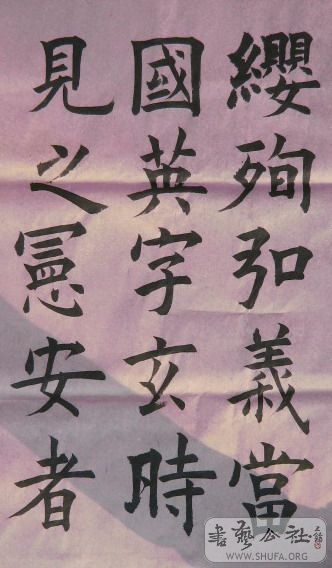 纓殉弘義當
國英字玄時
見之憲安者
書藝公社
WWW.SHUFA.ORG